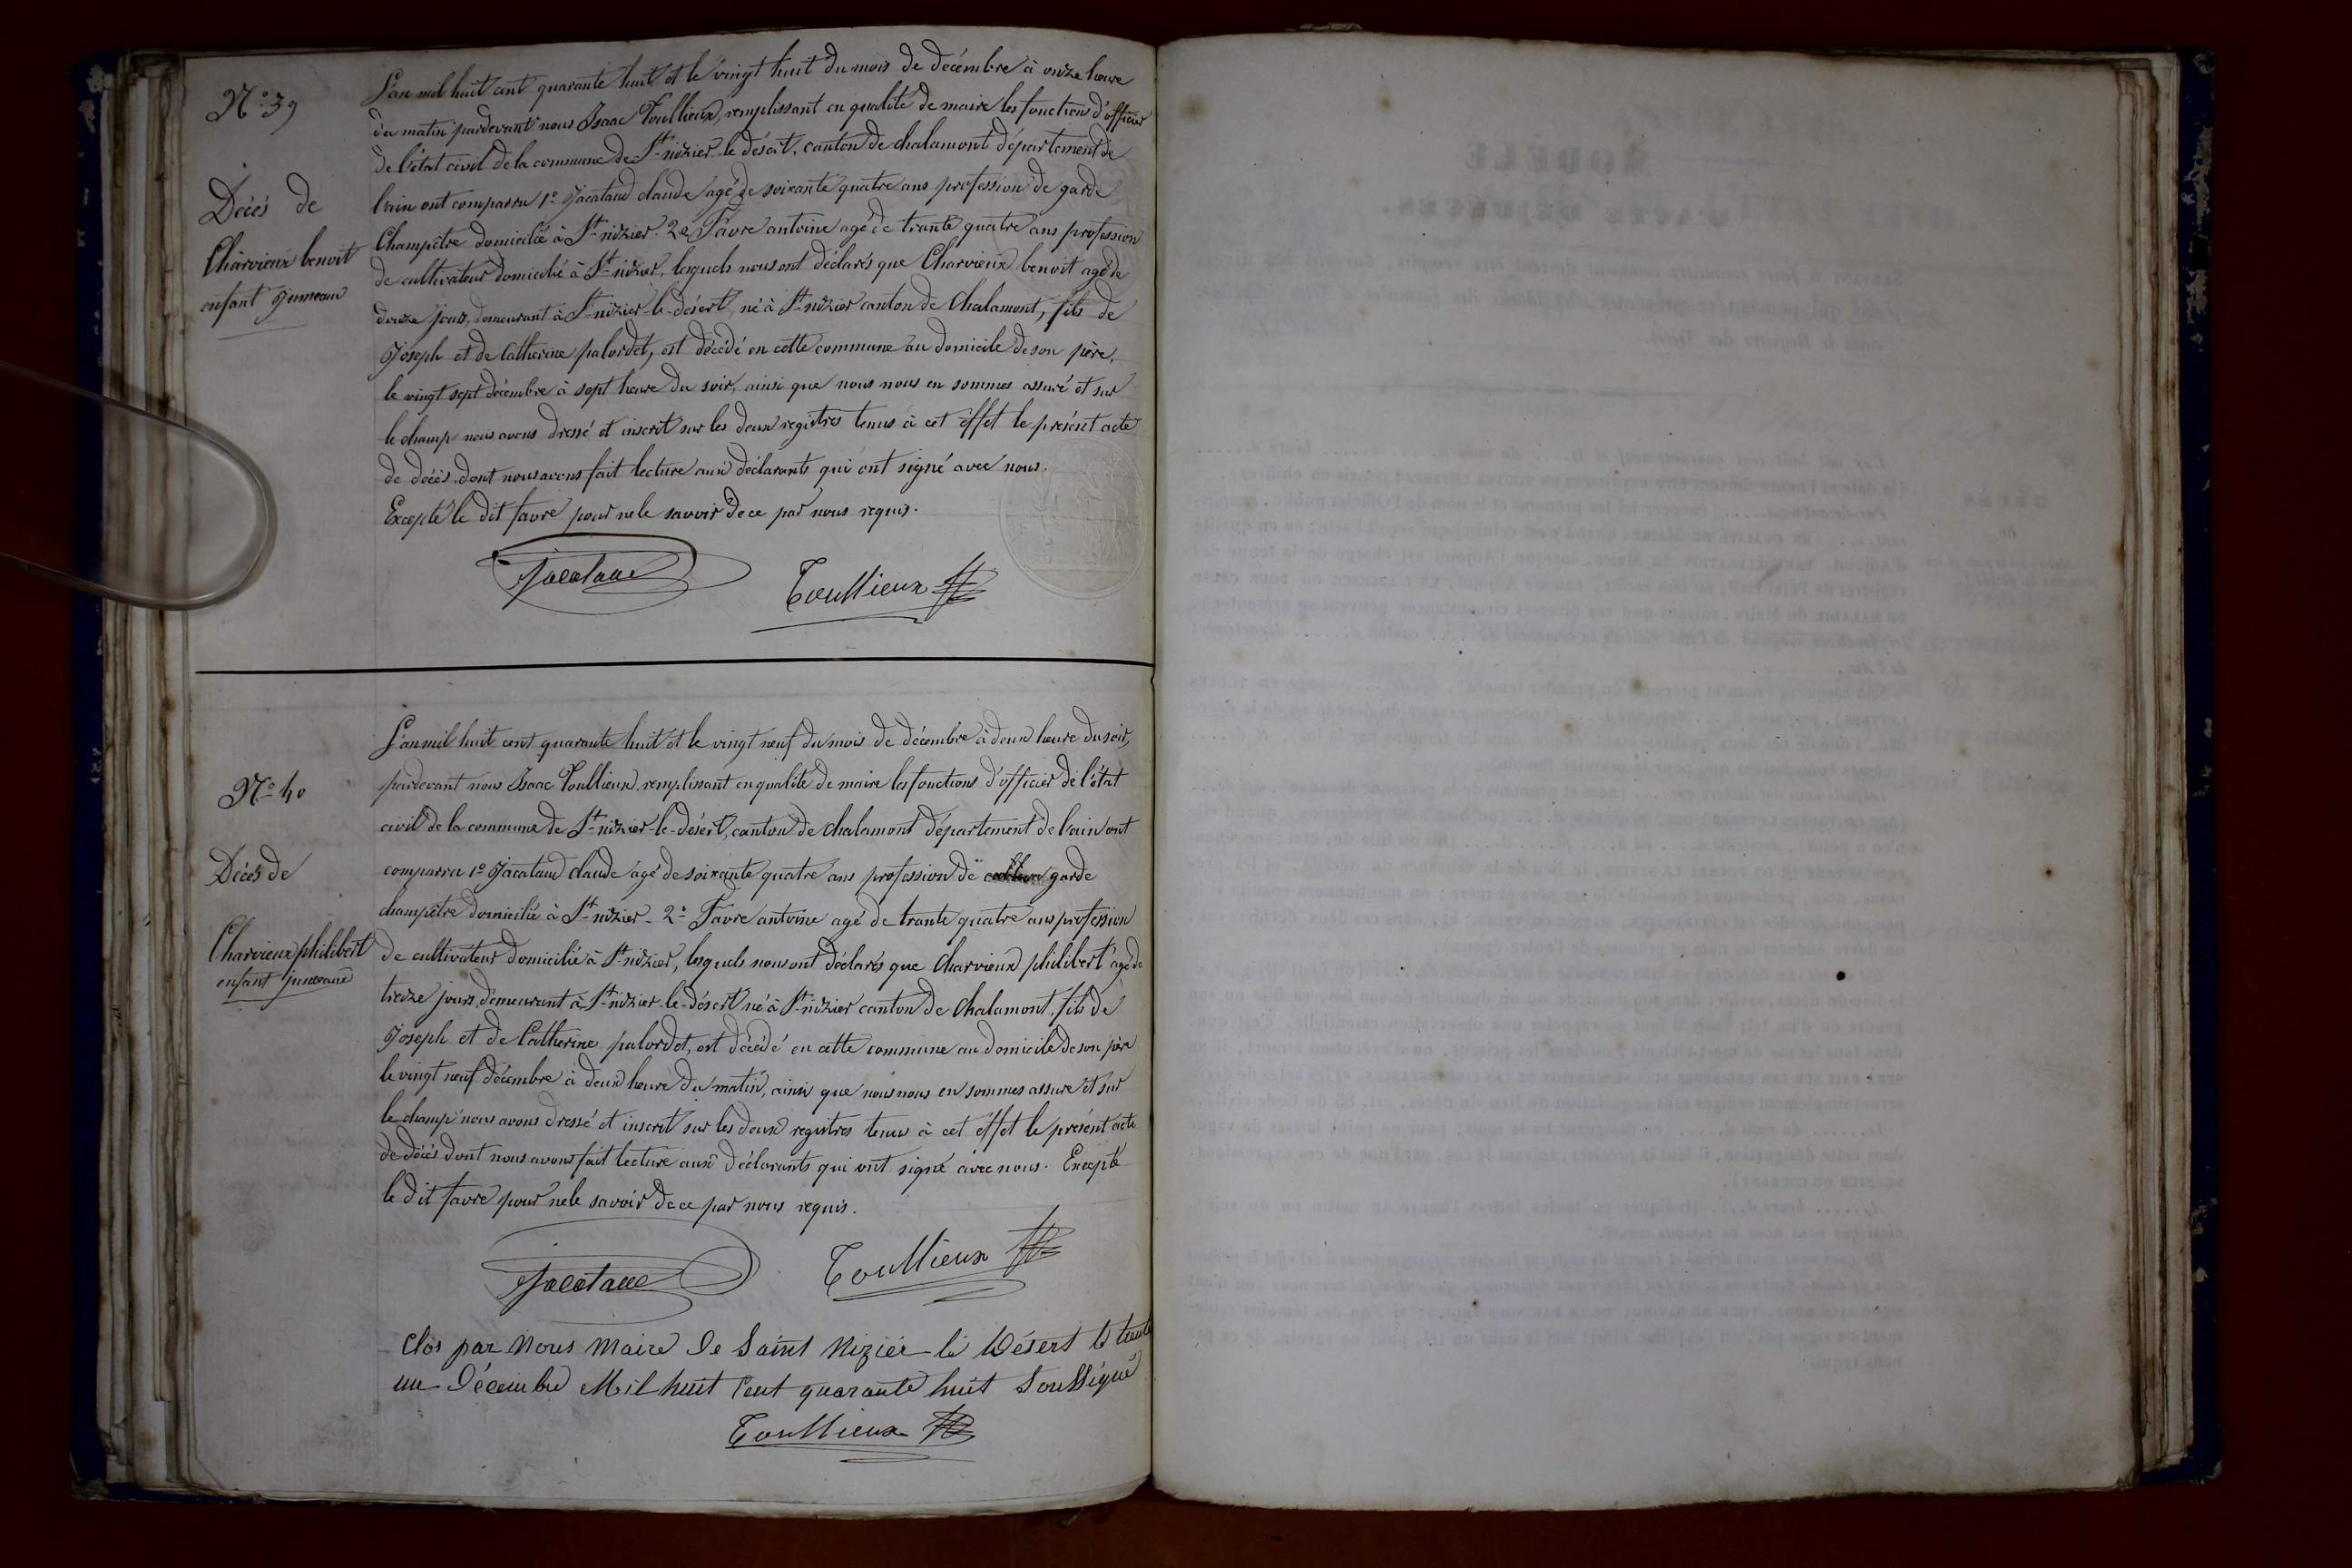 N° 39
Décès de
Charvieux benoit
enfant Jumeau
L'an mil huit cent quarante huit et le vingt huit du mois de décembre à onze heure
du matin pardevant nous Isaac Toullieux, remplissant en qualité de maire les fonctions d'officier
de l'état civil de la commune de St nizier-le-désert, canton de chalamont département de
l'ain ont comparru 1° Jacataud claude agé de soixante quatre ans profession de garde
Champêtre domicilié à St nizier. 2e Favre antoine agé de trante quatre ans profession
de cultivateur domicilié à St nizier, lesquels nous ont déclarés que Charvieux benoit agé de
douze jours, demeurant à St nizier-le-désert, né à St nizier canton de Chalamont, fils de
Joseph et de Catherine palordet, est décédé en cette commune au domicile de son père,
le vingt sept décembre à sept heure du soir, ainsi que nous nous en sommes assuré et sur
le champ nous avons dressé et inscrit sur les deux registres tenus à cet effet le présent acte
de décès, dont nous avons fait lecture aux déclarants qui ont signé avec nous.
Excepté le dit favre pour ne le savoir de ce par nous requis.
Jacataud Toullieux
N° 40
Décès de
Charvieux philibert
enfant jumeau
L'an mil huit cent quarante huit et le vingt neuf du mois de décembre à deux heure du soir,
pardevant nous Isaac Toullieux, remplissant en qualité de maire les fonctions d'officier de l'état
civil de la commune de St nizier-le-désert, canton de chalamont département de l'ain ont
comparru 1° Jacataud claude agé de soixante quatre ans profession de garde
champêtre domicilié à St nizier - 2° Favre antoine agé de trante quatre ans profession
de cultivateur domicilié à St nizier, lesquels nous ont déclarés que Charvieux philibert agé de
treize jours, demeurant à St nizier-le-désert né à St nizier canton de Chalamont, fils de
Joseph et de Catherine palordet, est décédé en cette commune au domicile de son père
le vingt neuf décembre à deux heure du matin, ainsi que nous nous en sommes assuré et sur
le champ nous avons dressé et inscrit sur les deux registres tenus à cet effet le présent acte
de décès dont nous avons fait lecture aux déclarants qui ont signé avec nous. Excepté
le dit favre pour ne le savoir de ce par nous requis.
Jacataud Toullieux
Clos par Nous Maire de Saint Nizier-le Désert le trente
un Décembre Mil huit Cent quarante huit Soussigné
Toullieux